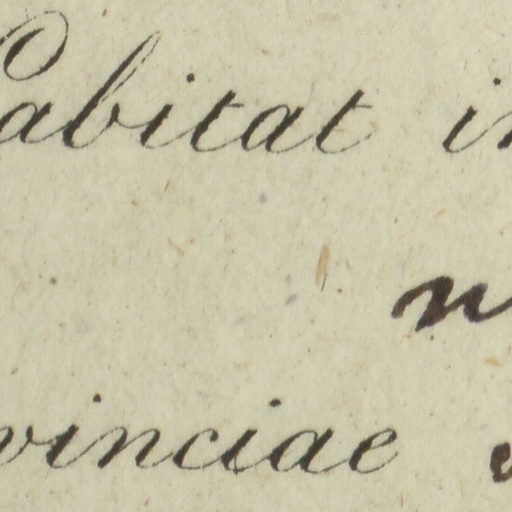 abitat in
vinciae